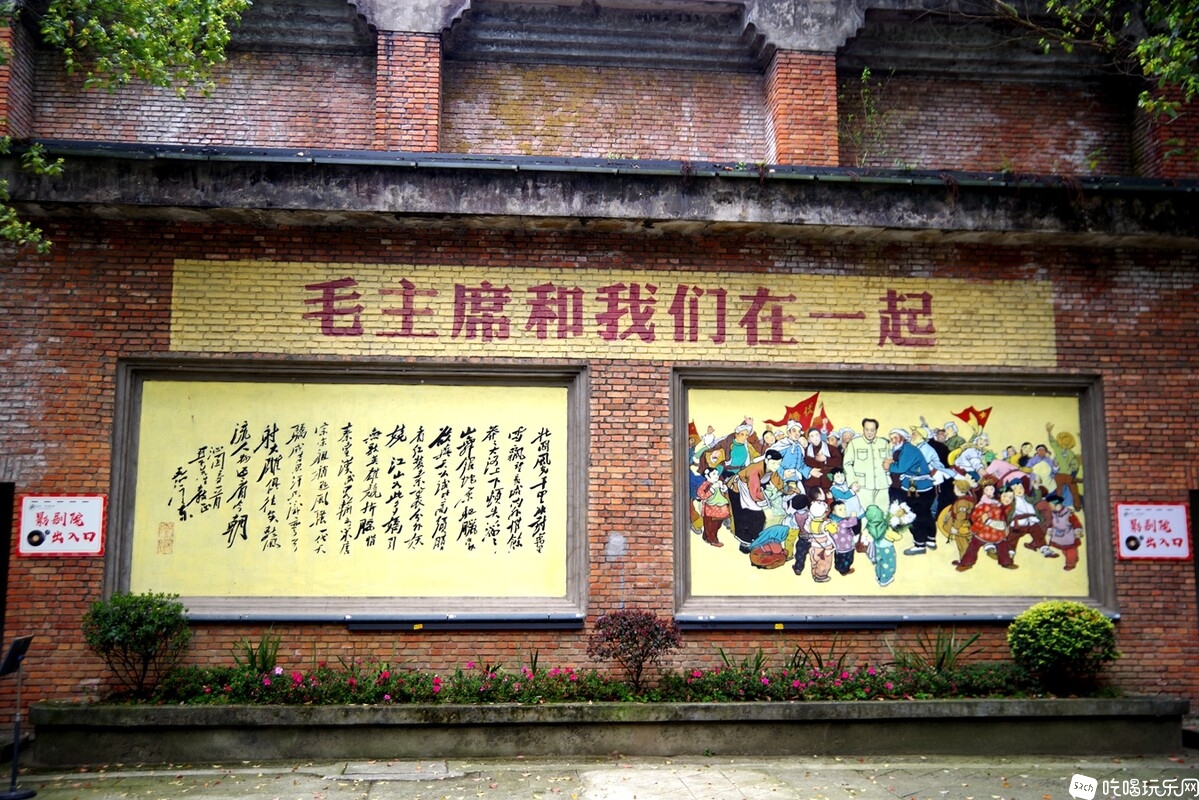 毛主席和我们在一起
北国风光千里冰封万里
雪飘望长城内外惟余
莽莽大河上下顿失滔滔
山舞银蛇原驰腊象
欲与天公试比高须晴日
看红装素裹分外妖
娆江山如此多娇引
无数英雄竞折腰惜
秦皇汉武略输文采唐
宗宋祖稍逊风骚一代天
骄成吉思汗只识弯弓
射大雕俱往矣数风
流人物还看今朝
沁园春一首
亚子先生教正
毛泽东
影剧院
出入口
影剧院
出入口
吃喝玩乐网